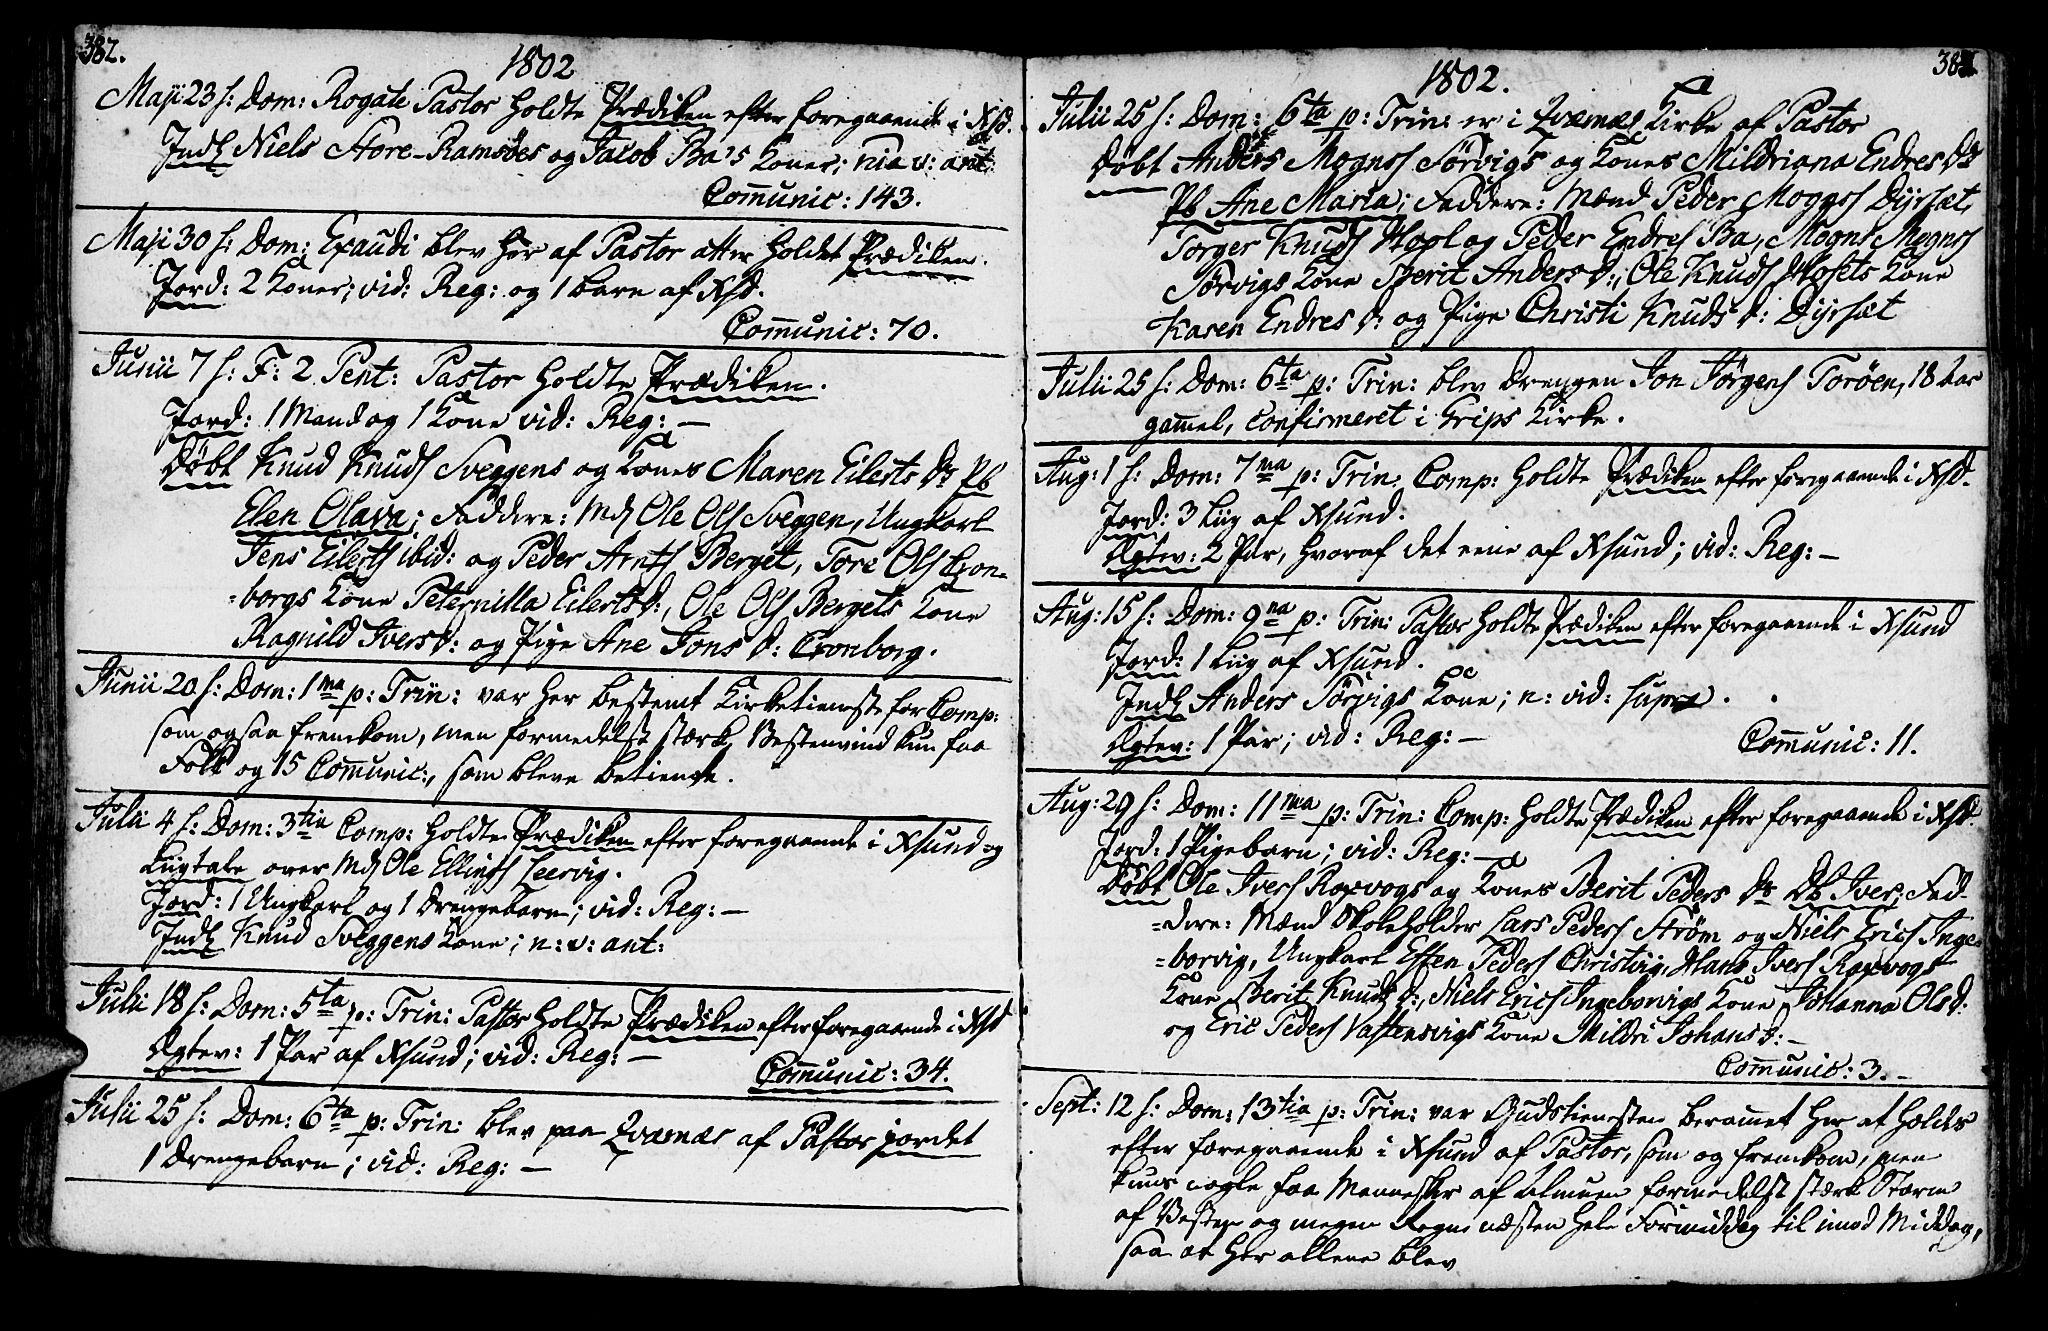 382.
1802
Maji 23 s: Dom: Rogate Pastor holdte Prædiken efter foregaaende i Xsd.
Indl Niels Store-Ramsöes og Jacob Ba's Koner; nia v: ant.
Communic: 143.
Maji 30 s: Dom: Exaudi blev her af Pastor atter holdet Prædiken.
Jord: 2 Koner; vid: Reg: og 1 barn af Xsd.
Communic: 70.
Junii 7 s: F: 2 Pent: Pastor holdte Prædiken.
Jord: 1 Mand og 1 Kone vid: Reg: —
Döbt Knud Knuds Sveggens og Kones Maren Eilerts Dr Pb
Elen Olava; Faddere: Md Ole Ols Sveggen, Ungkarl
Jens Eilerts ibid: og Peder Arnts Berget, Tore Ols Cron-
=borgs Kone Peternilla Eilerts d:, Ole Ols Bergets Kone
Ragnild Ivers d: og Pige Ane Jons d: Cronborg.
Junii 20 s: Dom: 1ma p: Trin: var her bestemt Kirketieneste for Comp:
som ogsaa fremkom, men formedelst stærk Vestenvind kun faa
Folk og 15 Communic:, som bleve betiente.
Julii 4 s: Dom: 3tia Comp: holdte Prædiken efter foregaaende i Xsund og
Liigtale over Md Ole Ellings Leervig.
Jord: 1 Ungkarl og 1 Drengebarn; vid: Reg: —
Indl Knud Sveggens Kone; n: v: ant:
Julii 18 s: Dom: 5ta p: Trin: Pastor holdte Prædiken efter foregaaende i Xsd
Ægtev: 1 Par af Xsund; vid: Reg: —
Communic: 34.
Julii 25 s: Dom: 6ta p: Trin: blev paa Qværnæs af Pastor jordet
1 Drengebarn; vid: Reg: —
1802.
Julii 25 s: Dom: 6ta p: Trin: er i Qværnæs Kirke af Pastor
Döbt Anders Mogns Sörvigs og Kones Mildriana Endres Dr
Pb Ane Maria; Faddere: Mænd Peder Moggs Dyrsæt,
Torger Knuds Hopl og Peder Endres Ba, Mogns Mogns
Sörvigs Kone Berit Anders d:, Ole Knuds Mosets Kone
Karen Endres d: og Pige Christi Knuds d: Dyrsæt
Julii 25 s: Dom: 6ta p: Trin: blev Drengen Jon Jörgens Toröen, 18 Aar
gammel, confirmeret i Grips Kirke.
Aug: 1 s: Dom: 7ma p: Trin: Comp: holdte Prædiken efter foregaaende i Xsd.
Jord: 3 Liig af Xsund.
Ægtev: 2 Par, hvoraf det eene af Xsund; vid: Reg: —
Aug: 15 s: Dom: 9na p: Trin: Pastor holdte Prædiken efter foregaaende i Xsund
Jord: 1 Liig af Xsund.
Indl Anders Sörvigs Kone; n: vid: supra.
Ægtev: 1 Par; vid: Reg: —
Communic: 11.
Aug: 29 s: Dom: 11ma p: Trin: Comp: holdte Prædiken efter foregaaende i Xsd.
Jord: 1 Pigebarn; vid: Reg: —
Döbt Ole Ivers Roxvogs og Kones Berit Peders Dr Db Iver; Fad-
=dere: Mænd Skoleholder Lars Peders Ström og Niels Erics Inge-
=borvig, Ungkarl Esten Peders Christvig, Hans Ivers Roxvogs
Kone Berit Knuds d:, Niels Erics Ingeborvigs Kone Johanna Ols d:
og Eric Peders Vastensvigs Kone Mildri Johans d: —
Communic: 3. —
Sept: 12 s: Dom: 13tia p: Trin: var Gudstienesten beramet her at holdes
efter foregaaende i Xsund af Pastor, som og fremkom, men
kuns nogle faa Mennesker af Almuen formedelst stærk Storm
af Vesten og megen Regn næsten hele Formiddag til imod Middag,
saa at her allene blev